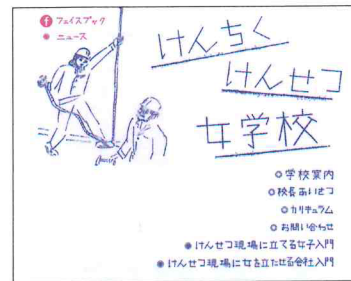 フェイスブック
ニュース
けんちく
けんせつ
女学校
学校案内
校長あいさつ
カリキュラム
お問い合わせ
けんせつ現場に立てる女子入門
けんせつ現場に女を立たせる会社入門